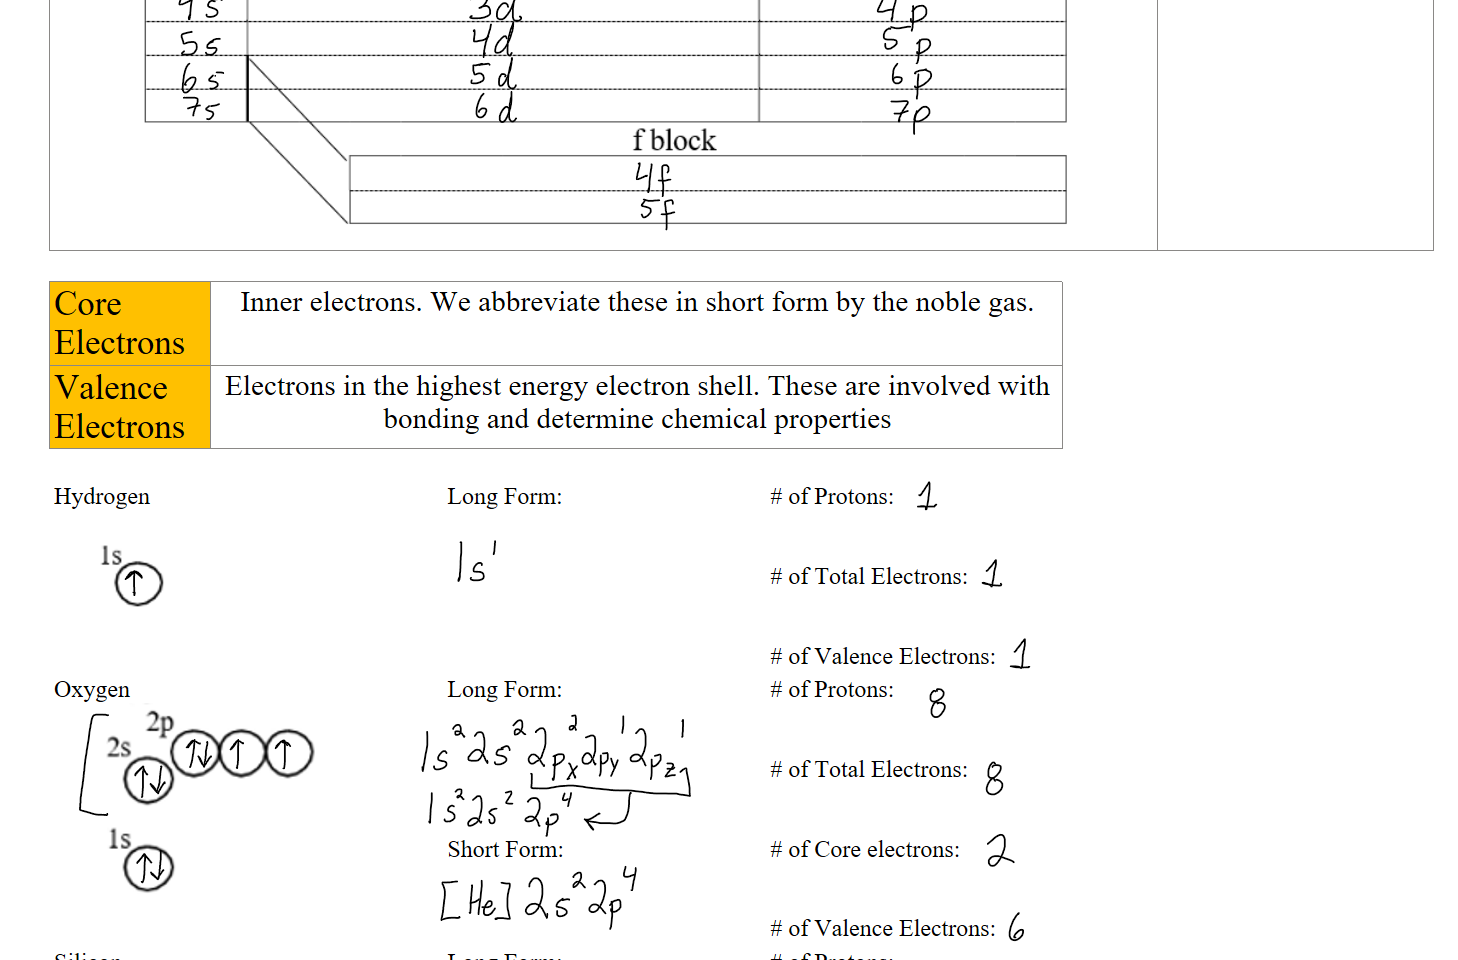 4s 3d 4p
5s 4d 5p
6s 5d 6p
7s 6d 7p
f block
4f
5f
Core Electrons
Inner electrons. We abbreviate these in short form by the noble gas.
Valence Electrons
Electrons in the highest energy electron shell. These are involved with
bonding and determine chemical properties
Hydrogen Long Form: # of Protons: 1
1s ↑ 1s¹
# of Total Electrons: 1
# of Valence Electrons: 1
Oxygen Long Form: # of Protons: 8
2p ↑↓ ↑ ↑
2s ↑↓
1s²2s²2px²2py¹2pz¹
# of Total Electrons: 8
1s²2s²2p⁴
1s ↑↓
Short Form: # of Core electrons: 2
[He]2s²2p⁴
# of Valence Electrons: 6
Silicon Long Form: # of Protons: